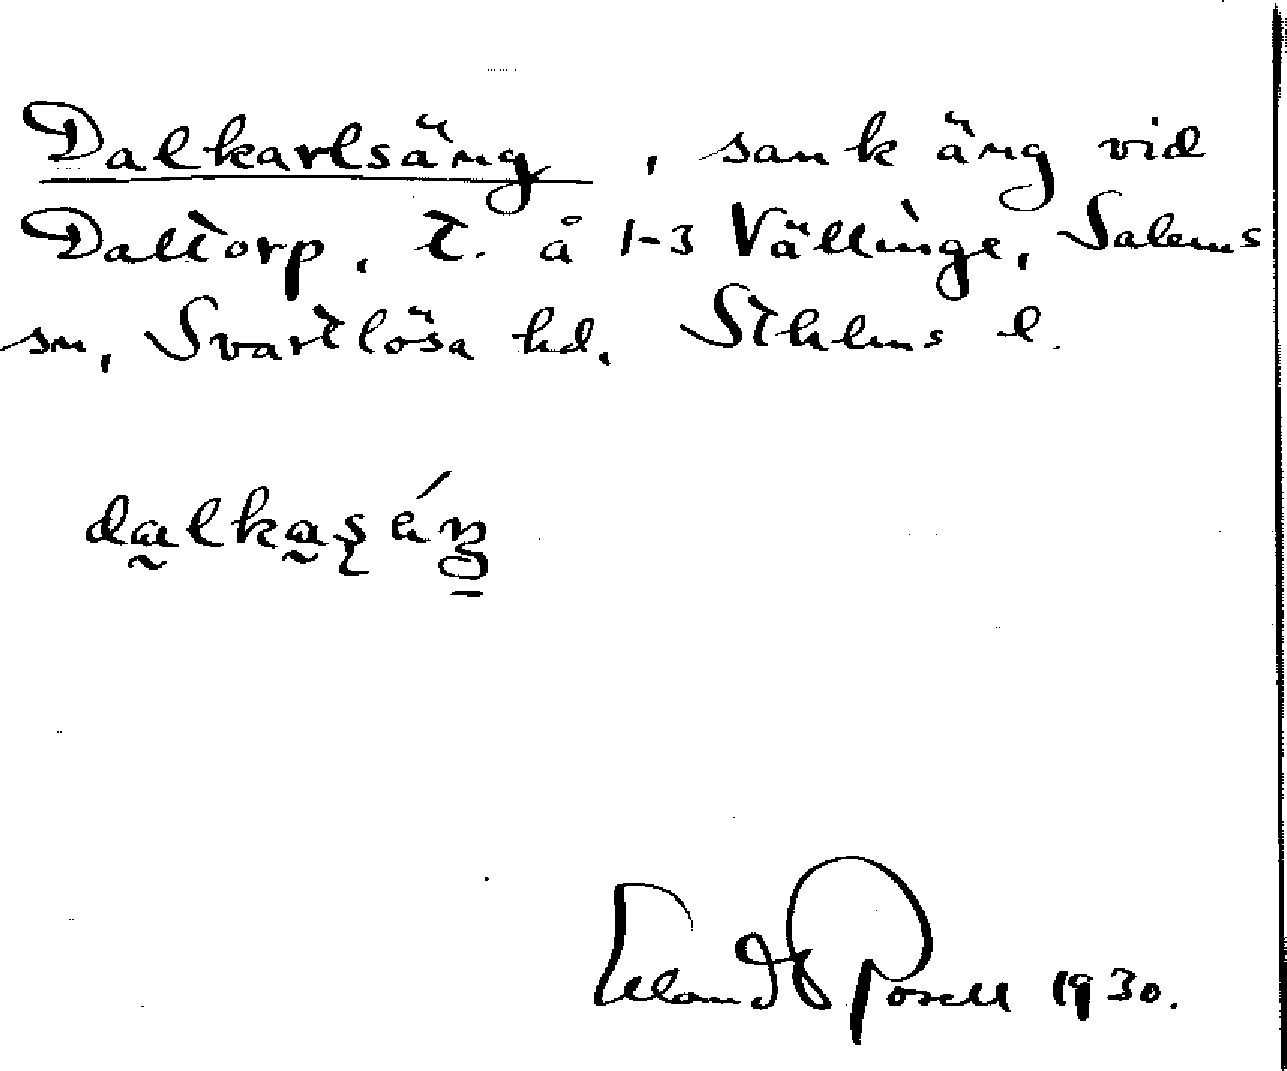 Dalkarlsäng, sank äng vid
Daltorp, t. å 1-3 Vällinge, Salems
sn, Svartlösa hd, Sthlms l.
Erland Rosell 1930.